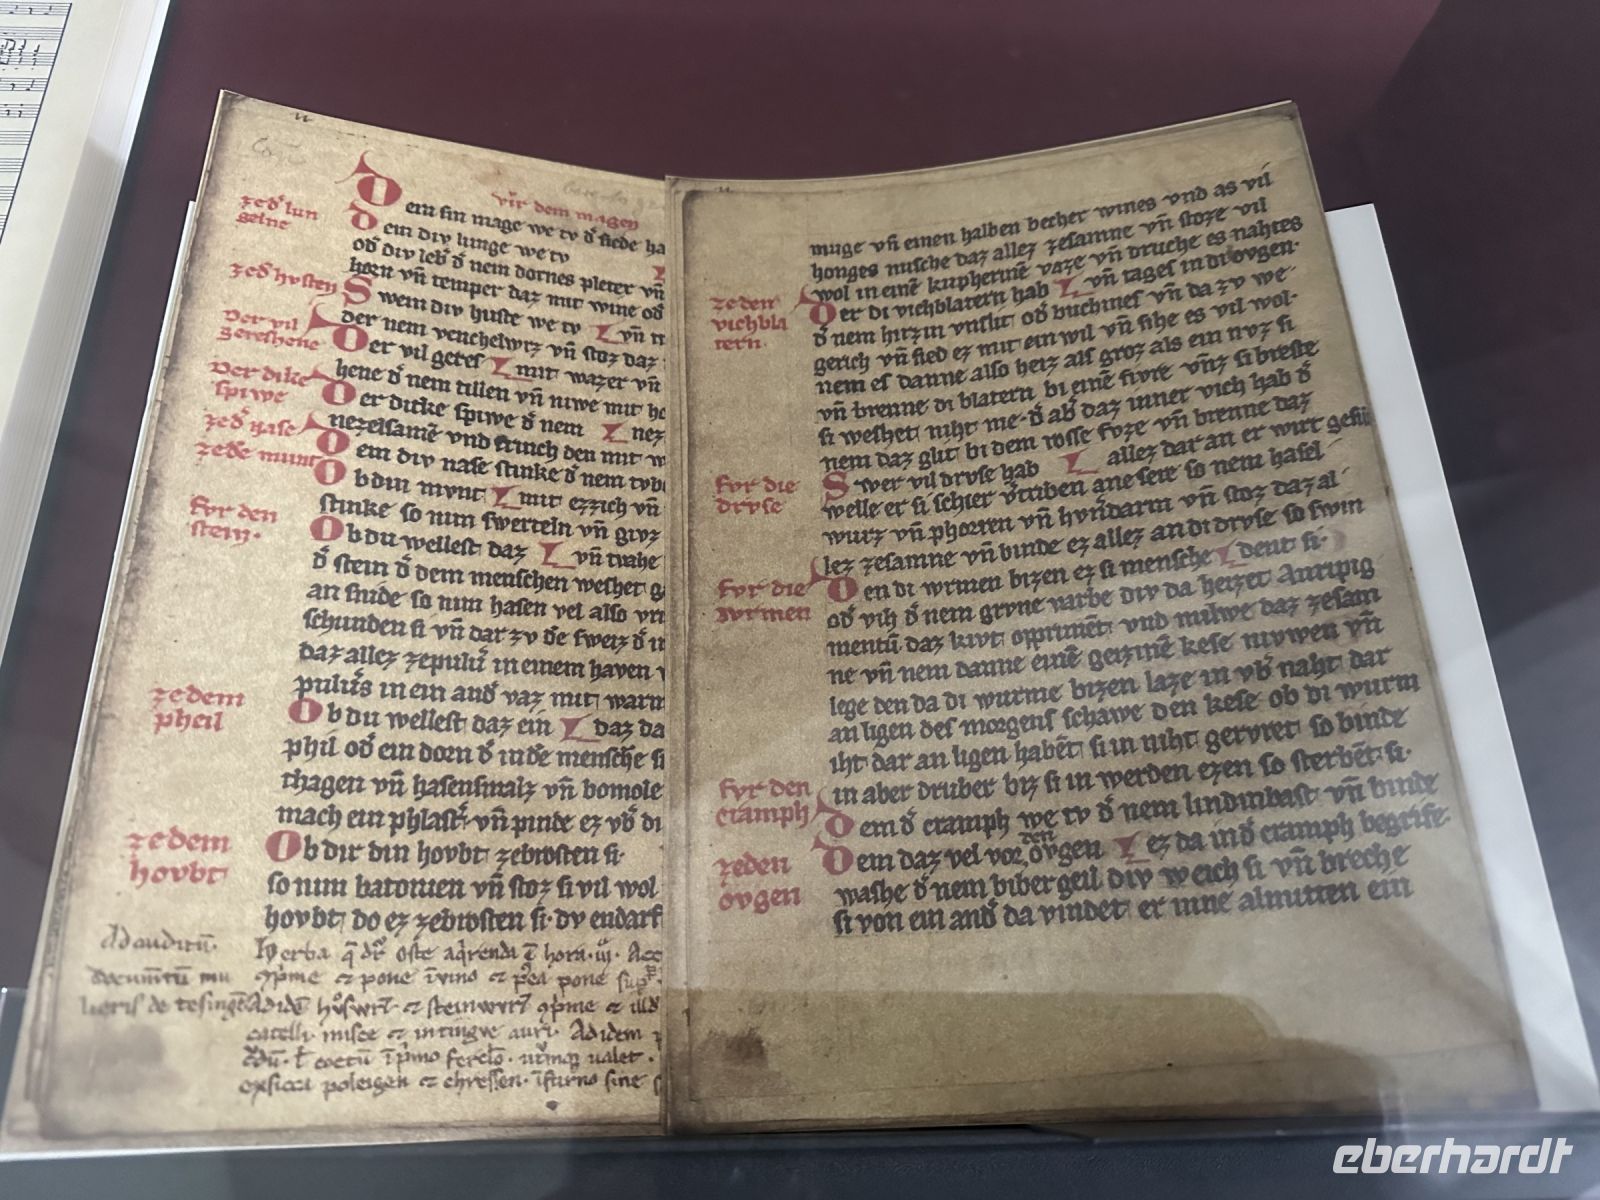 vur dem magen
Dem sin mage we tv d' siede ha
zed' lun
gelne
Dem div lunge we tv
od' div leb' d' nem dornes pleter vn̄
horn vn̄ temper daz mit wine od'
zed' hvsten
Swem div huste we tv vn̄
der nem venchelwrz vn̄ stoz daz
Der vil
zereshene
Der vil geres mit wazer vn̄
hene d' nem tillen vn̄ niwe mit
Der dike
spiwe
Der dicke spiwe d' nem nez
nezelsamē vnd trinch den mit w
zed' nase
Dem div nase stinke d' nem
zede munt
Ob din mvnt mit ezzich vn̄
stinke so nim swerteln vn̄ givz
fvr den
stein.
Ob du wellest daz vn̄ trahe
d' stein d' dem menschen weshet
an snide so nim hasen vel also
schunden si vn̄ dar zv d'e sweiz d'
daz allez zepuluer in einem haven
puluers in ein and' vaz mit warm
ze dem
pheil
Ob du wellest daz ein daz da
phil od' ein dorn d' in d'e mensche si
thagen vn̄ hasensmalz vn̄ bomole
mach ein phlaster vn̄ pinde ez vb' di
ze dem
hovbt
Ob dir din hovbt zebrosten si
so nim batonien vn̄ stoz si vil wol
hovbt do ez zebrosten si. dv endarf
Ad auditū.
Herba q̄ dr̄ oste aq̄renda ē hora. iij.
documtū mu
p̄me et pone ī vino et
lieris de tesingē
Ad idē et steinwurz p̄me et
catelli misce et intingve auri. Ad idem
exsicca poleigen et chressen. sine
muge vn̄ einen halben becher wines vnd as vil
honges mische daz allez zesamne vn̄ stoze vil
wol in einē kupherinē vaze vn̄ druche es nahtes
vn̄ tages in di ovgen.
ze den
vichbla
tern.
Der di vichblatern hab
d' nem hirzin vnslit od' buchines vn̄ da zv we
gerich vn̄ sied ez mit ein wil vn̄ sihe es vil wol.
nem es danne also heiz als groz als ein nvz si
vn̄ brenne di blatern bi einē fivre vn̄z si breste
si weshet niht me. d' ab' daz inner vich hab d'
nem daz glit bi dem rosse fvze vn̄ brenne daz
allez dar an er wirt
fvr die
drvse
Swer vil drvse hab
welle er si schier v'triben ane sere so nem hasel
wurz vn̄ phorren vn̄ hvn̄darm vn̄ stoz daz al
lez zesamne vn̄ binde ez allez an di drvse so swin
dent si.
fvr die
wrmen
Den di wrmen bizen ez si mensche
od' vih d' nem grvne varbe div da heizet Auripig
mentū daz kivt opriment vnd milwe daz zesam
ne vn̄ nem danne einē geizinē kese niwen vn̄
lege den da di wurme bizen laze in vb' naht dar
an ligen des morgens schawe den kese ob di wurm
iht dar an ligen habēt si in niht gervret so binde
in aber druber biz si in werden ezen so sterbēt si.
fvr den
cramph
Dem d' cramph we tv d' nem lindinbast vn̄ binde
ez da in d' cramph begrife.
ze den
ovgen
Dem daz vel vor den ovgen
washe d' nem biber geil div weich si vn̄ breche
si von ein and' da vindet er inne almitten ein
eberhardt